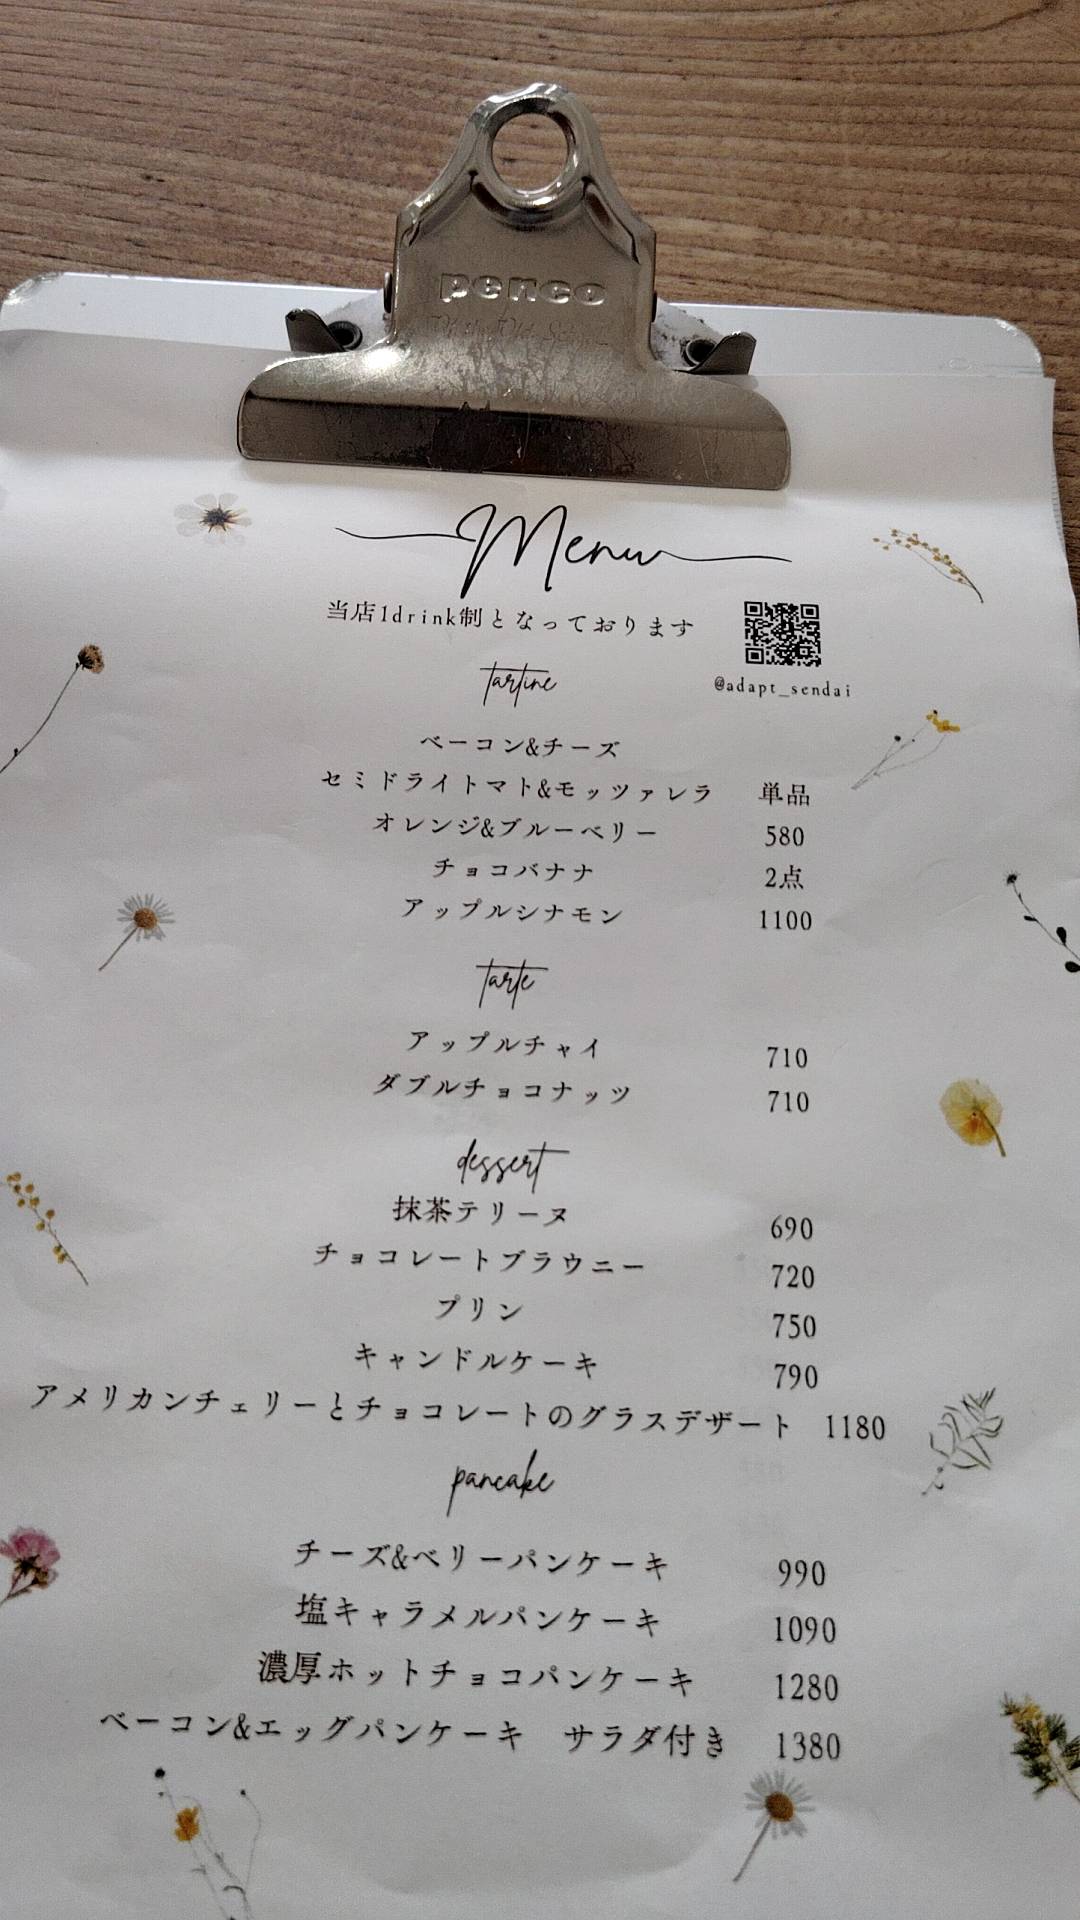 penco
Menu
当店1drink制となっております
@adapt_sendai
tartine
ベーコン&チーズ
セミドライトマト&モッツァレラ 単品
オレンジ&ブルーベリー 580
チョコバナナ 2点
アップルシナモン 1100
tarte
アップルチャイ 710
ダブルチョコナッツ 710
dessert
抹茶テリーヌ 690
チョコレートブラウニー 720
プリン 750
キャンドルケーキ 790
アメリカンチェリーとチョコレートのグラスデザート 1180
pancake
チーズ&ベリーパンケーキ 990
塩キャラメルパンケーキ 1090
濃厚ホットチョコパンケーキ 1280
ベーコン&エッグパンケーキ サラダ付き 1380